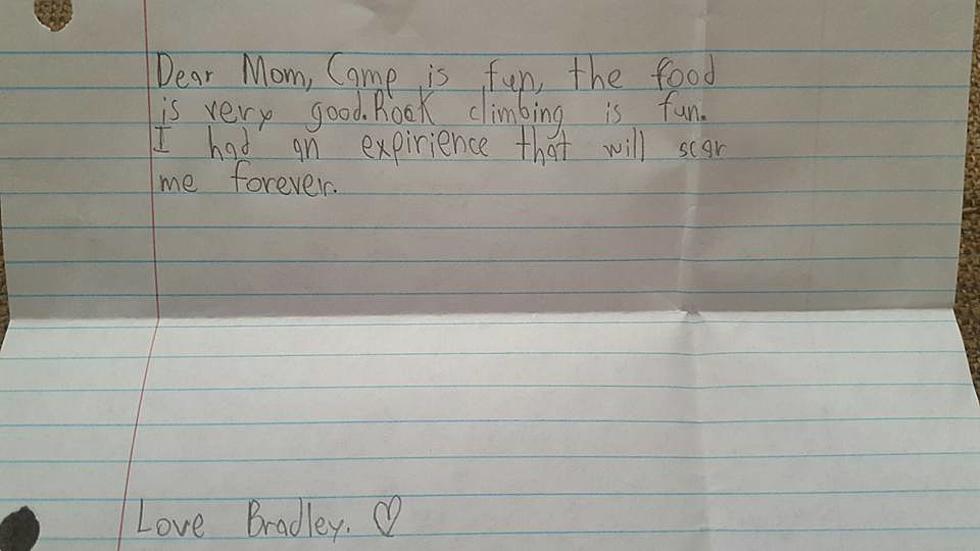 Dear Mom, Camp is fun, the food
is very good. Rock climbing is fun.
I had an expirience that will scar
me forever.
Love Bradley. ♡